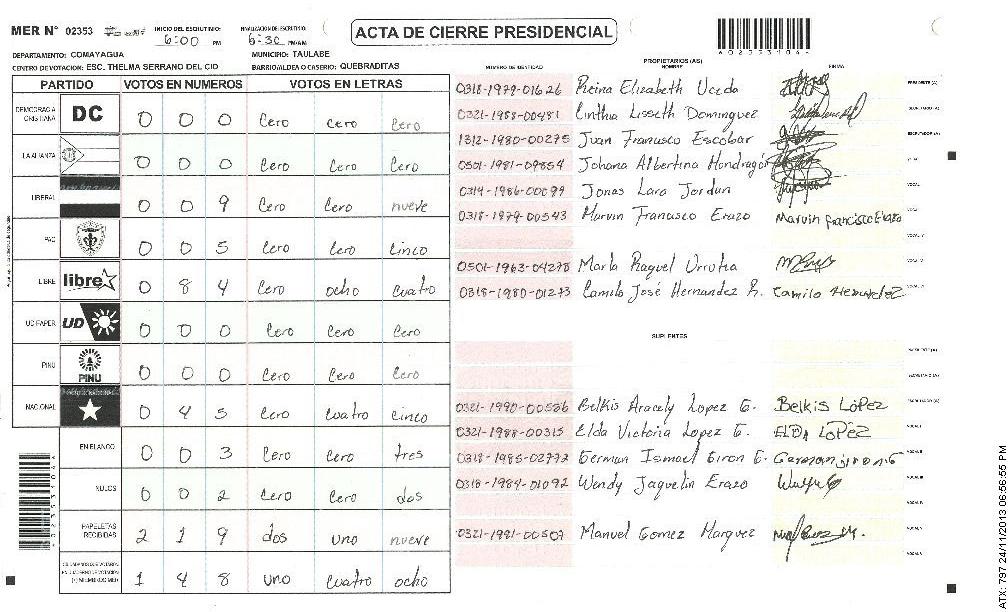 MER N° 02353
INICIO DEL ESCRUTINIO:
6:00 PM
FINALIZACION DE ESCRUTINIO:
6:30 PM/AM
ACTA DE CIERRE PRESIDENCIAL
DEPARTAMENTO: COMAYAGUA
MUNICIPIO: TAULABE
CENTRO DE VOTACION: ESC. THELMA SERRANO DEL CID
BARRIO/ALDEA O CASERIO: QUEBRADITAS
PARTIDO VOTOS EN NUMEROS VOTOS EN LETRAS
DEMOCRACIA CRISTIANA DC 0 0 0 Cero cero Cero
LA ALIANZA 0 0 0 Cero Cero Cero
LIBERAL 0 0 9 Cero Cero nueve
PAC 0 0 5 Cero Cero Cinco
LIBRE libre 0 8 4 Cero ocho cuatro
UD FAPER UD 0 0 0 Cero Cero Cero
PINU PINU 0 0 0 Cero Cero Cero
NACIONAL 0 4 5 Cero cuatro cinco
EN BLANCO 0 0 3 Cero Cero tres
NULOS 0 0 2 Cero Cero dos
PAPELETAS RECIBIDAS 2 1 9 dos uno nueve
1 4 8 uno cuatro ocho
PROPIETARIOS (AS)
NUMERO DE IDENTIDAD NOMBRE FIRMA
0318-1979-01626 Reina Elizabeth Uceda PRESIDENTE (A)
0321-1988-00481 Cinthia Lisseth Dominguez SECRETARIO (A)
1312-1980-00275 Juan Francisco Escobar ESCRUTADOR (A)
0501-1981-09854 Johana Albertina Mondragón
0314-1986-00099 Jonas Lara Jordan
0318-1979-00543 Marvin Francisco Erazo Marvin Francisco Erazo
0501-1963-04278 Marla Raquel Urrutia
0318-1980-01273 Camilo José Hernandez R. Camilo Hernandez
SUPLENTES
0321-1990-00586 Belkis Aracely Lopez G. Belkis LóPez
0321-1988-00315 Elda Victoria Lopez G. ElDA LoPez
0318-1985-02772 German Ismael Giron G.
0318-1984-01092 Wendy Jaquelin Erazo
0321-1981-00507 Manuel Gomez Marquez
ATX: 797 24/11/2013 06:56:55 PM